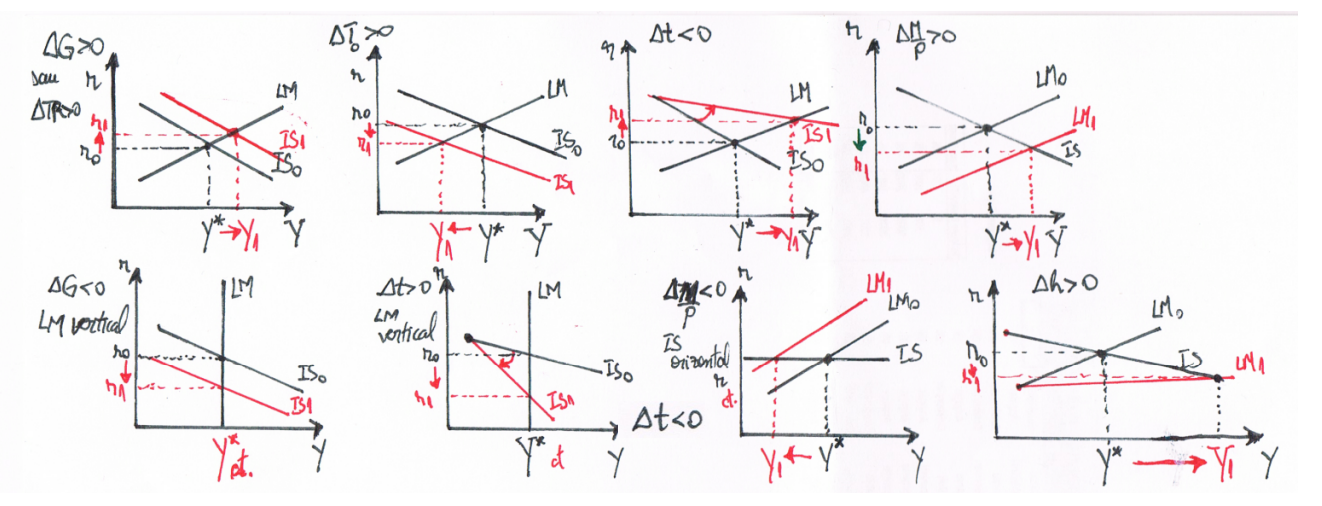 ΔG>0
sau
ΔTR>0
r
LM
r1
r0
IS1
IS0
Y* → Y1 Y
ΔT0>0
r
LM
r0
r1
IS0
IS1
Y1 ← Y* Y
Δt<0
r
LM
r1
r0
IS1
IS0
Y* → Y1 Y
r
ΔM/P>0
LM0
LM1
r0
r1
IS
Y* → Y1 Y
ΔG<0
LM vertical
r
LM
r0
r1
IS0
IS1
Y* Y
ct.
Δt>0
LM
vertical
r
LM
r0
r1
IS0
IS1
Y* ct Y
Δt<0
ΔM/P<0
IS
orizontal
r
ct.
r
LM1
LM0
IS
Y1 ← Y* Y
Δh>0
r
LM0
r0
r1
IS
LM1
Y* → Y1 Y